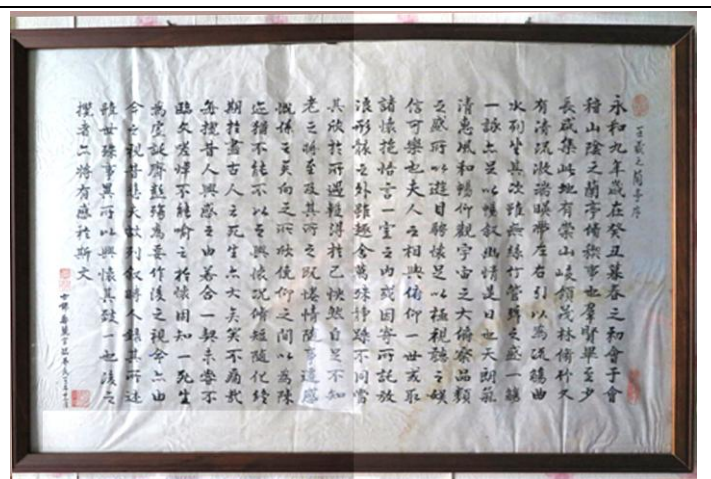 王羲之蘭亭序
永和九年歲在癸丑暮春之初會于會
稽山陰之蘭亭脩稧事也羣賢畢至少
長咸集此地有崇山峻領茂林脩竹又
有清流激湍暎帶左右引以為流觴曲
水列坐其次雖無絲竹管絃之盛一觴
一詠亦足以暢叙幽情是日也天朗氣
清惠風和暢仰觀宇宙之大俯察品類
之盛所以遊目騁懷足以極視聽之娛
信可樂也夫人之相與俯仰一世或取
諸懷抱悟言一室之內或因寄所託放
浪形骸之外雖趣舍萬殊靜躁不同當
其欣於所遇暫得於己怏然自足不知
老之將至及其所之既惓情隨事遷感
慨係之矣向之所欣俛仰之間以為陳
迹猶不能不以之興懷況脩短隨化終
期於盡古人云死生亦大矣豈不痛哉
每攬昔人興感之由若合一契未嘗不
臨文嗟悼不能喻之於懷固知一死生
為虛誕齊彭殤為妄作後之視今亦由
今之視昔悲夫故列叙時人錄其所述
雖世殊事異所以興懷其致一也後之
攬者亦將有感於斯文